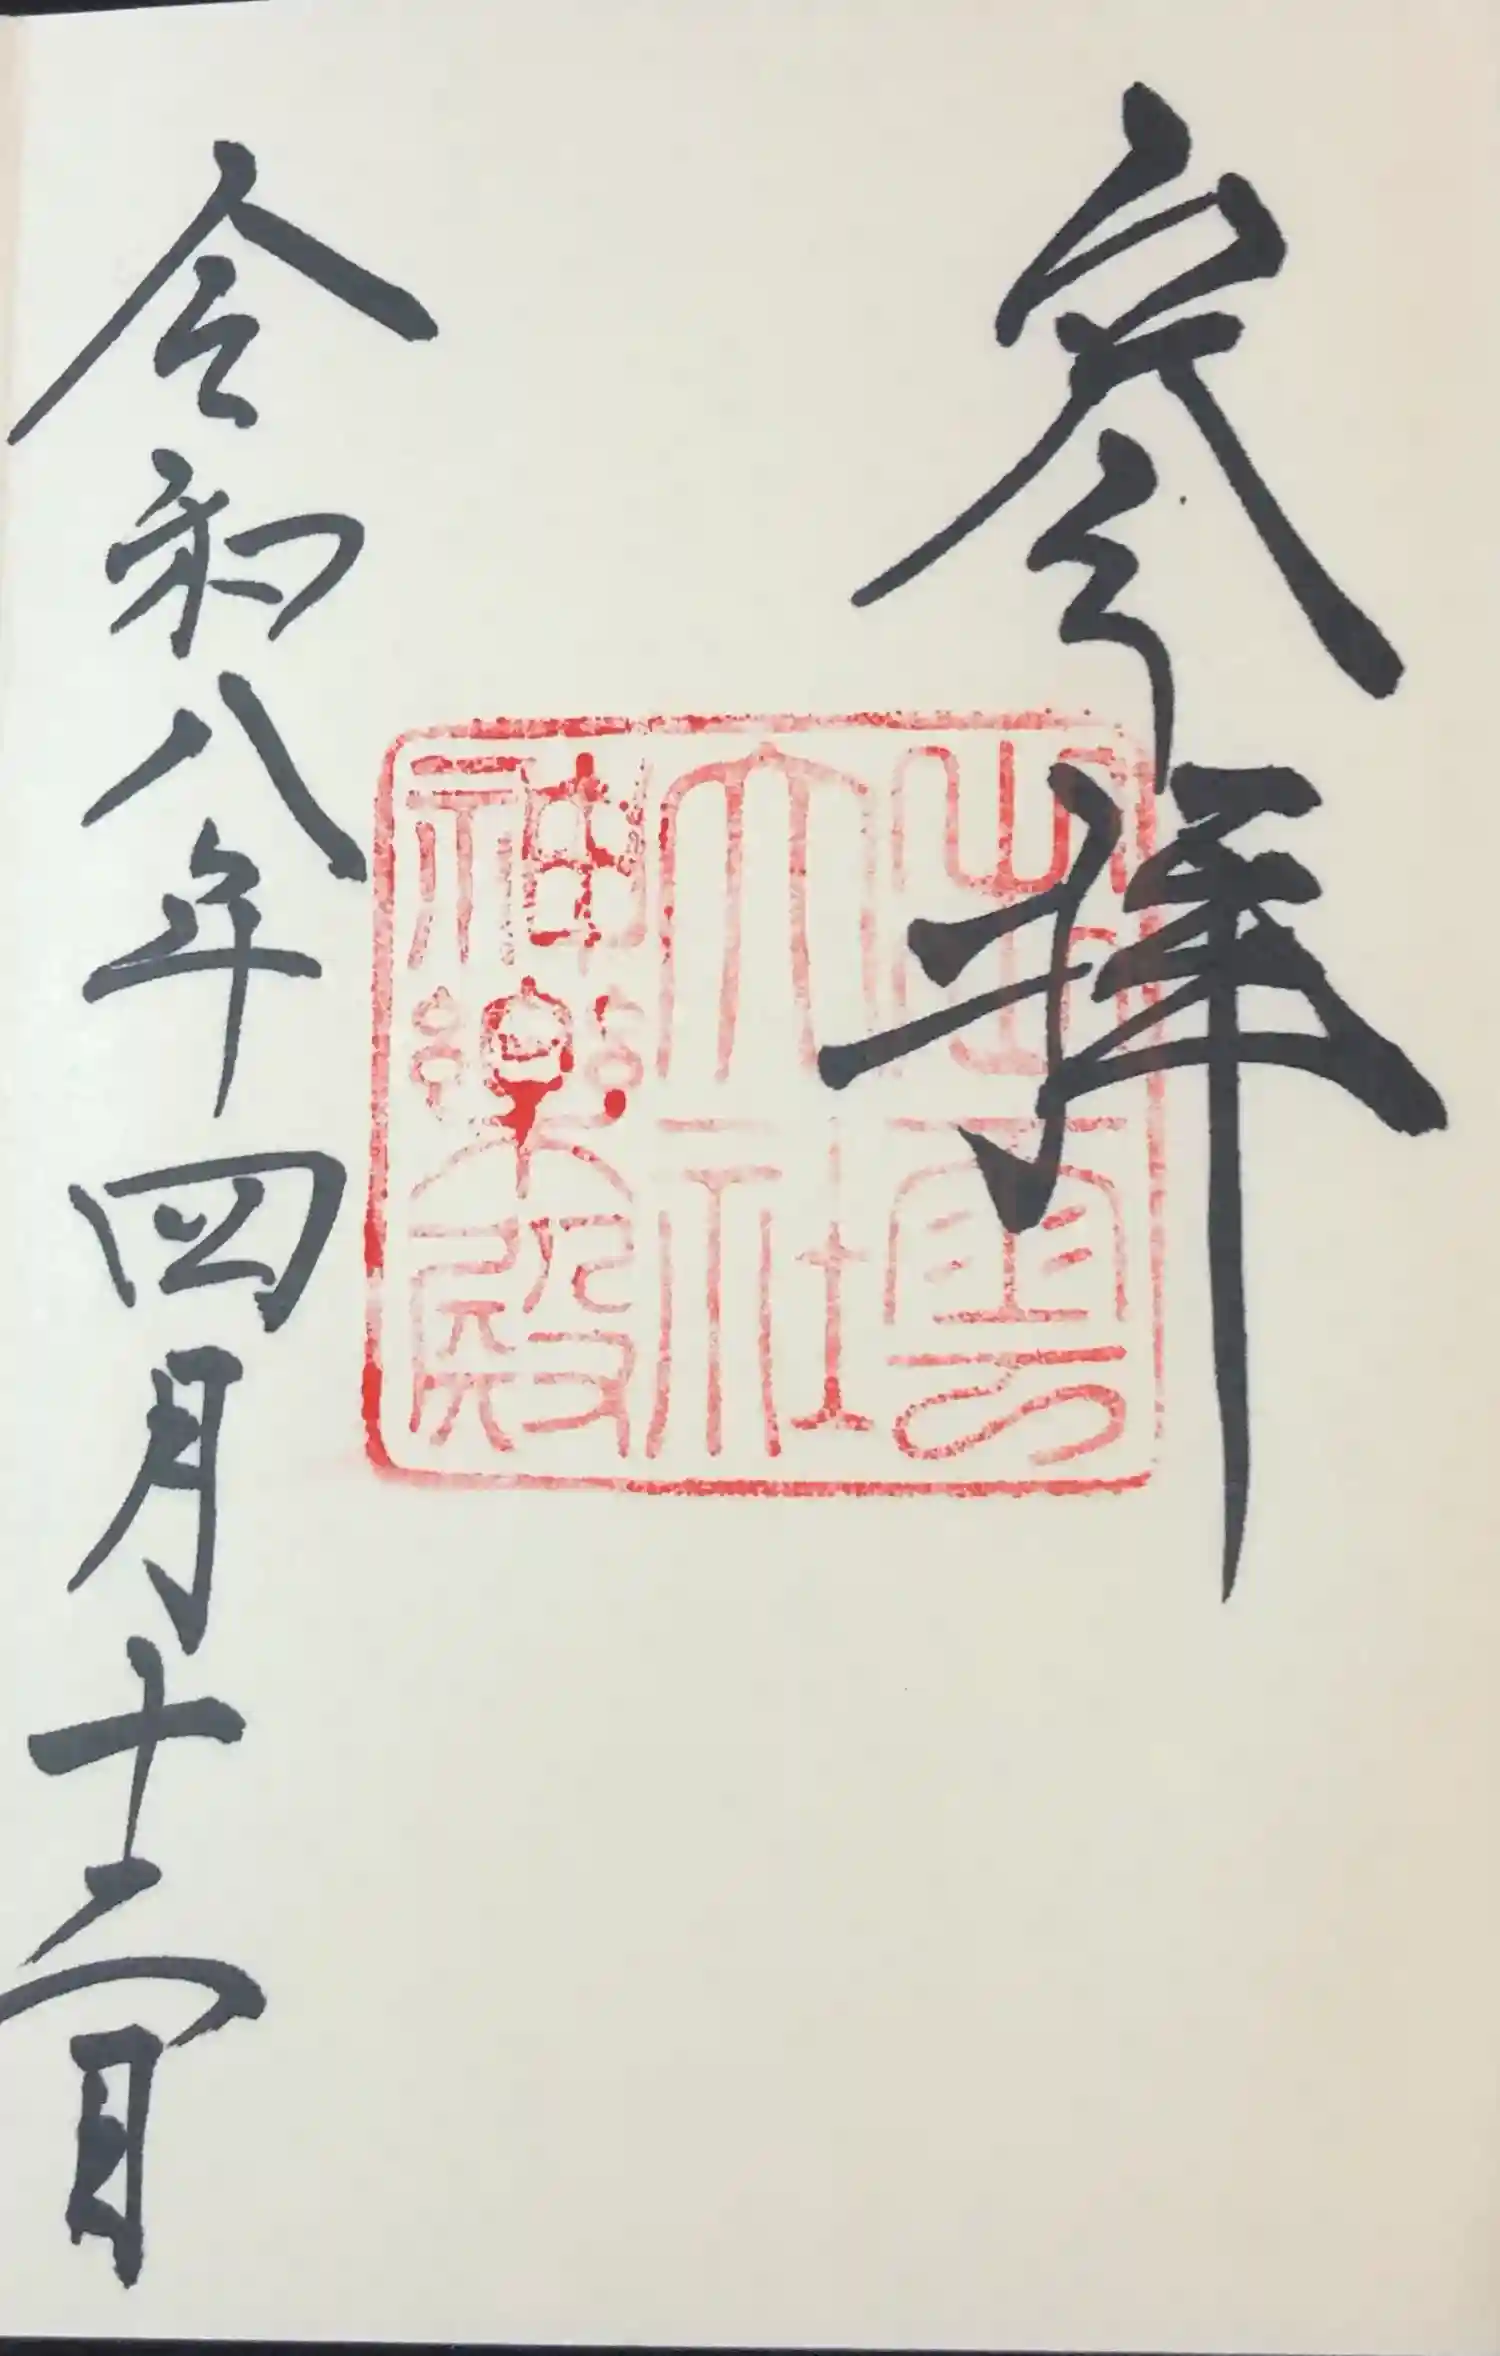 参拝
出雲
大社
神楽殿
令和八年四月十二日